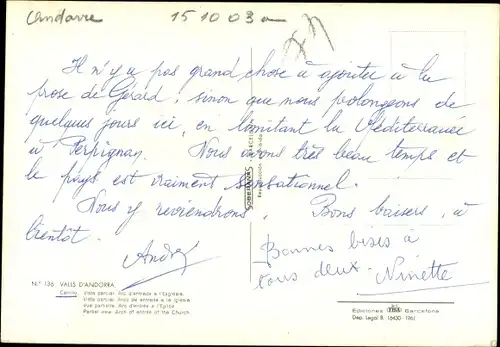 Andorre 151003a
Il n'y a pas grand chose à ajouter à la
prose de Gérard, sinon que nous prolongeons de
quelques jours ici, en limitant la Méditerranée
à Perpignan. Nous avons très beau temps et
le pays est vraiment sensationnel.
Nous y reviendrons. Bons baisers, à
bientôt.
André
Bonnes bises à
tous deux. Ninette
SOBERANAS
N.° 136 VALLS D'ANDORRA.
Canillo
Vista parcial. Arc d'entrada a l'Església.
Vista parcial. Arco de entrada a la Iglesia
Vue partielle. Arc d'entrée a l'Eglise
Partial view. Arch of entrée of the Church.
Ediciones Barcelona
Dep. Legal B. 16430-1961